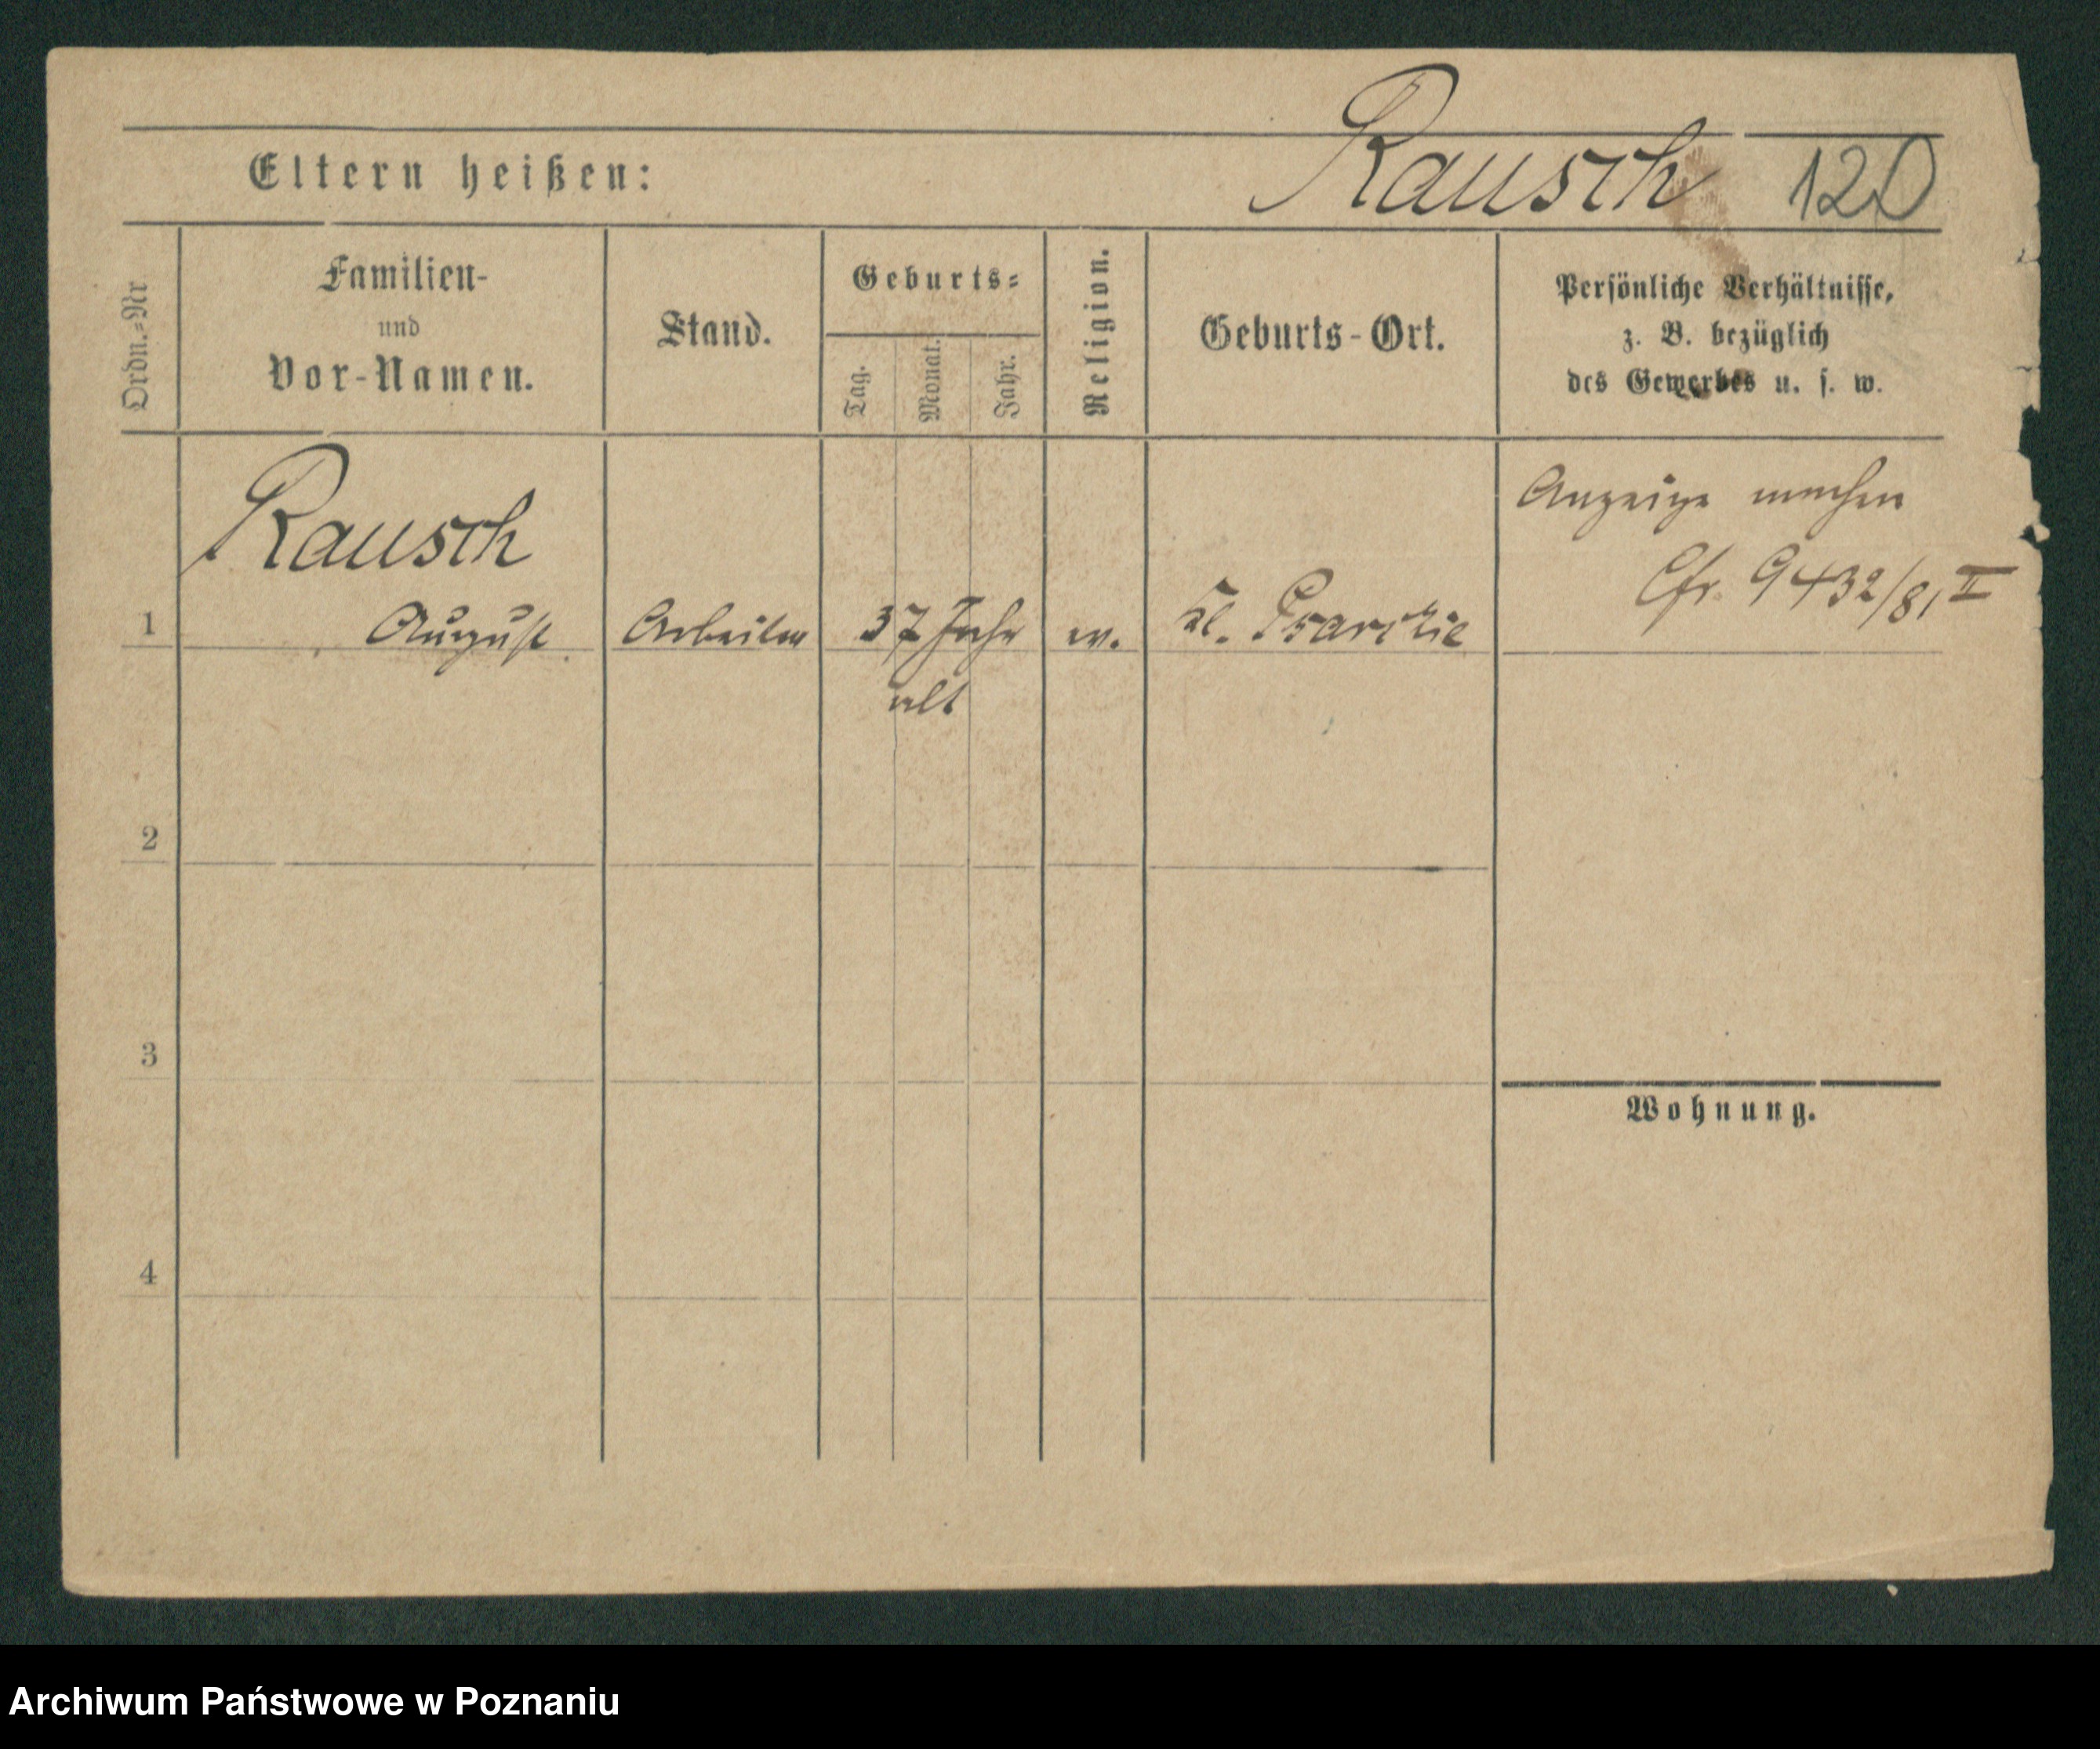 Rausch 120
Eltern heißen:
Ordn.=Nr
Familien-
und
Vor-Namen.
Stand.
Geburts=
Tag.
Monat.
Jahr.
Religion.
Geburts-Ort.
Persönliche Verhältnisse,
z. B. bezüglich
des Gewerbes u. s. w.
Anzeige machen
Cfr. 9432/81 II
Rausch
1 August Arbeiter 37 Jahr ev. Kl. Psarskie
alt
2
3
Wohnung.
4
Archiwum Państwowe w Poznaniu